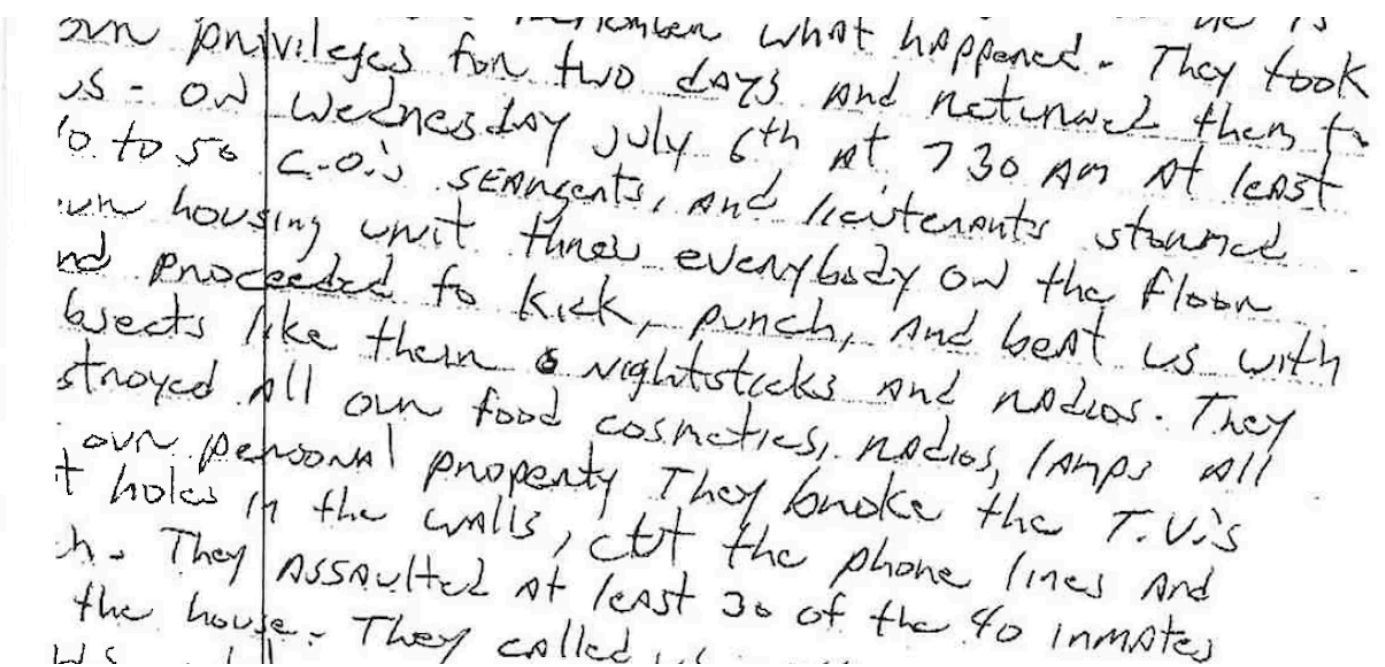 what happened. They took
privileges for two days and returned them to
us - on Wednesday july 6th at 730 AM At least
to 50 C.O.'s seargents, and lieutenants stormed
housing unit threw everybody on the floor
nd proceeded to kick, punch, and beat us with
bjects like them nightsticks and radios. They
stroyed all our food cosmetics, radios, lamps all
our personal property They broke the T.V.'s
t holes in the walls, cut the phone lines and
h. They assaulted at least 30 of the 40 inmates
the house. They called